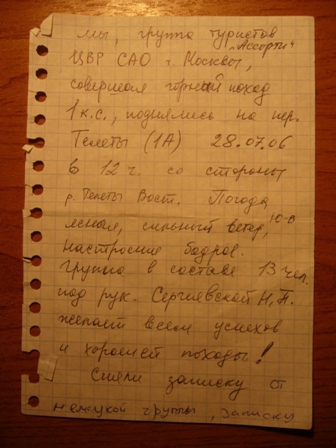 Мы, группа туристов
„Ассорти"
ЦВР САО г. Москвы,
совершая горный поход
1 к.с., поднялись на пер.
Телеты (1А) 28.07.06
в 12 ч. со стороны
р. Телеты Вост. Погода
ясная, сильный ветер, Ю-В
настроение бодрое.
Группа в составе 13 чел.
под рук. Сергиевской Н.П.
желает всем успехов
и хорошей погоды!
Сняли записку от
немецкой группы, записку